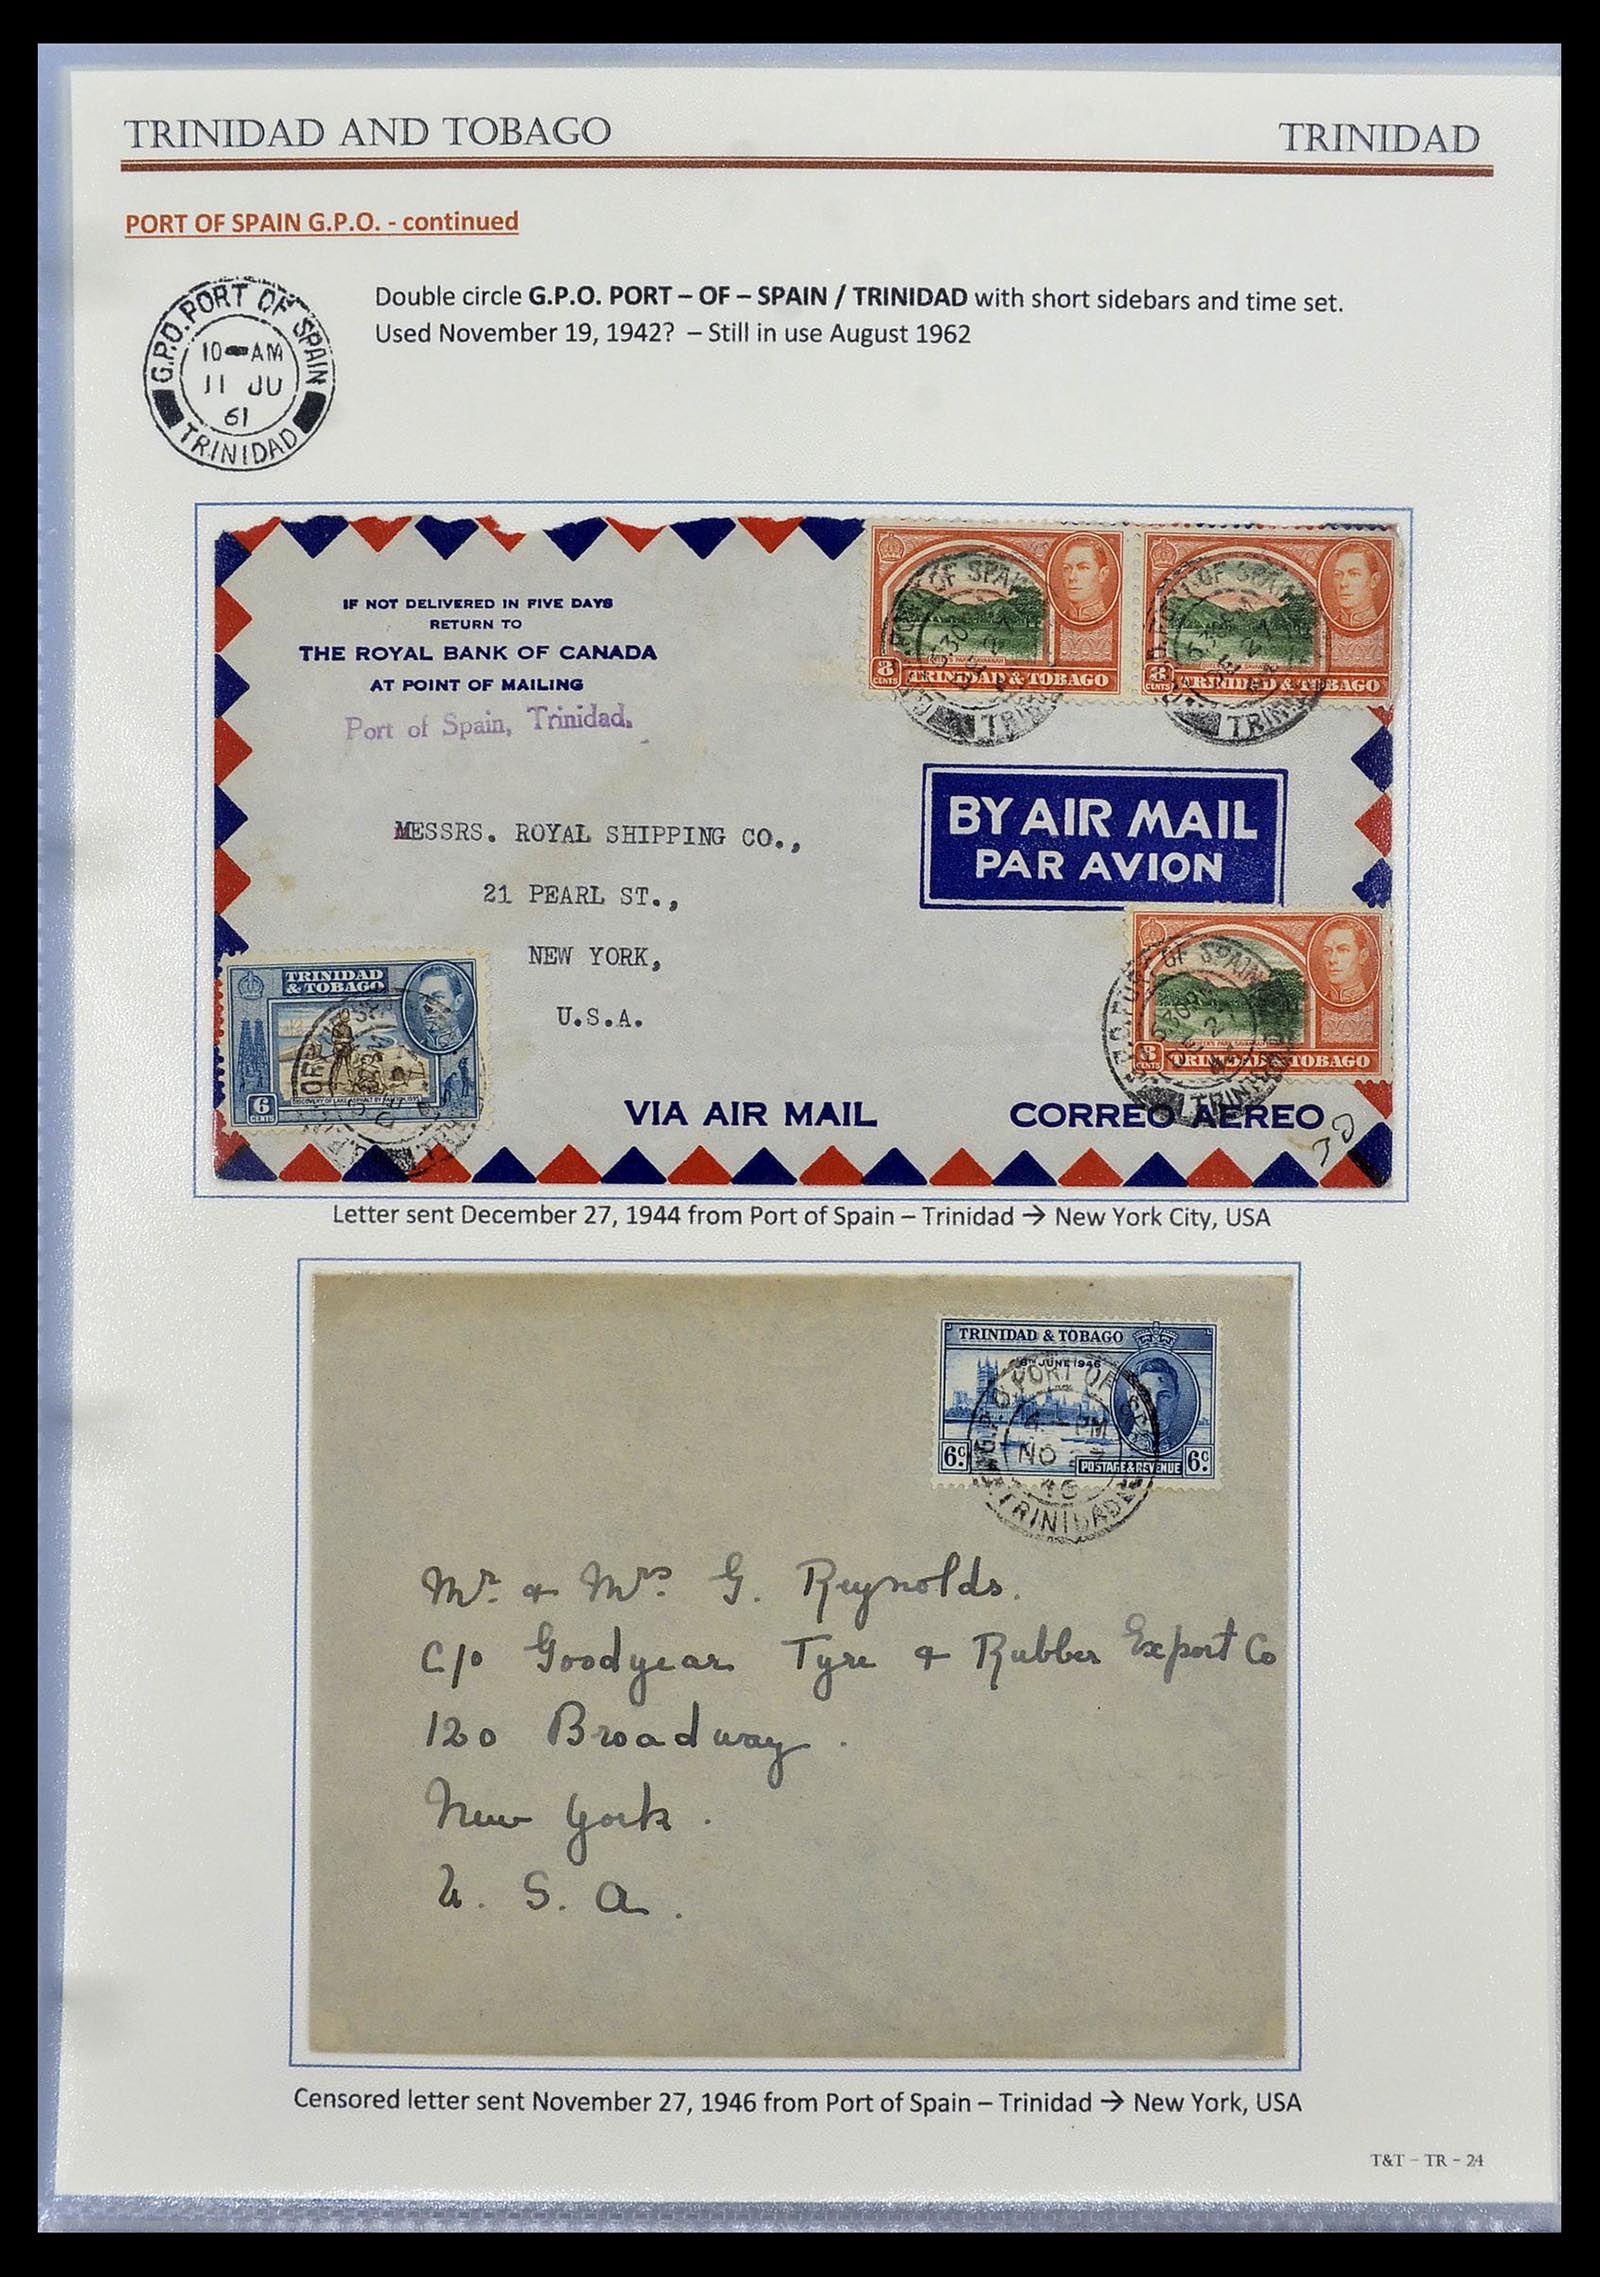 TRINIDAD AND TOBAGO
TRINIDAD
PORT OF SPAIN G.P.O. - continued
G.P.O. PORT OF SPAIN
10 AM
11 JU
61
TRINIDAD
Double circle G.P.O. PORT – OF – SPAIN / TRINIDAD with short sidebars and time set.
Used November 19, 1942? – Still in use August 1962
IF NOT DELIVERED IN FIVE DAYS
RETURN TO
THE ROYAL BANK OF CANADA
AT POINT OF MAILING
Port of Spain, Trinidad.
8 CENTS TRINIDAD & TOBAGO
8 CENTS TRINIDAD & TOBAGO
BY AIR MAIL
PAR AVION
MESSRS. ROYAL SHIPPING CO.,
21 PEARL ST.,
NEW YORK,
U.S.A.
TRINIDAD
& TOBAGO
DISCOVERY OF LAKE ASPHALT BY RALEIGH, 1595
6
CENTS
OF SPAIN
8 CENTS TRINIDAD & TOBAGO
VIA AIR MAIL
CORREO AEREO
30
Letter sent December 27, 1944 from Port of Spain – Trinidad → New York City, USA
TRINIDAD & TOBAGO
8TH JUNE 1946
PORT OF
4 - PM
NO 27
46
TRINIDAD
6c.
POSTAGE & REVENUE
6c.
Mr. & Mrs G. Reynolds.
c/o Goodyear Tyre & Rubber Export Co
120 Broadway.
New York.
U. S. A.
Censored letter sent November 27, 1946 from Port of Spain – Trinidad → New York, USA
T&T – TR – 24